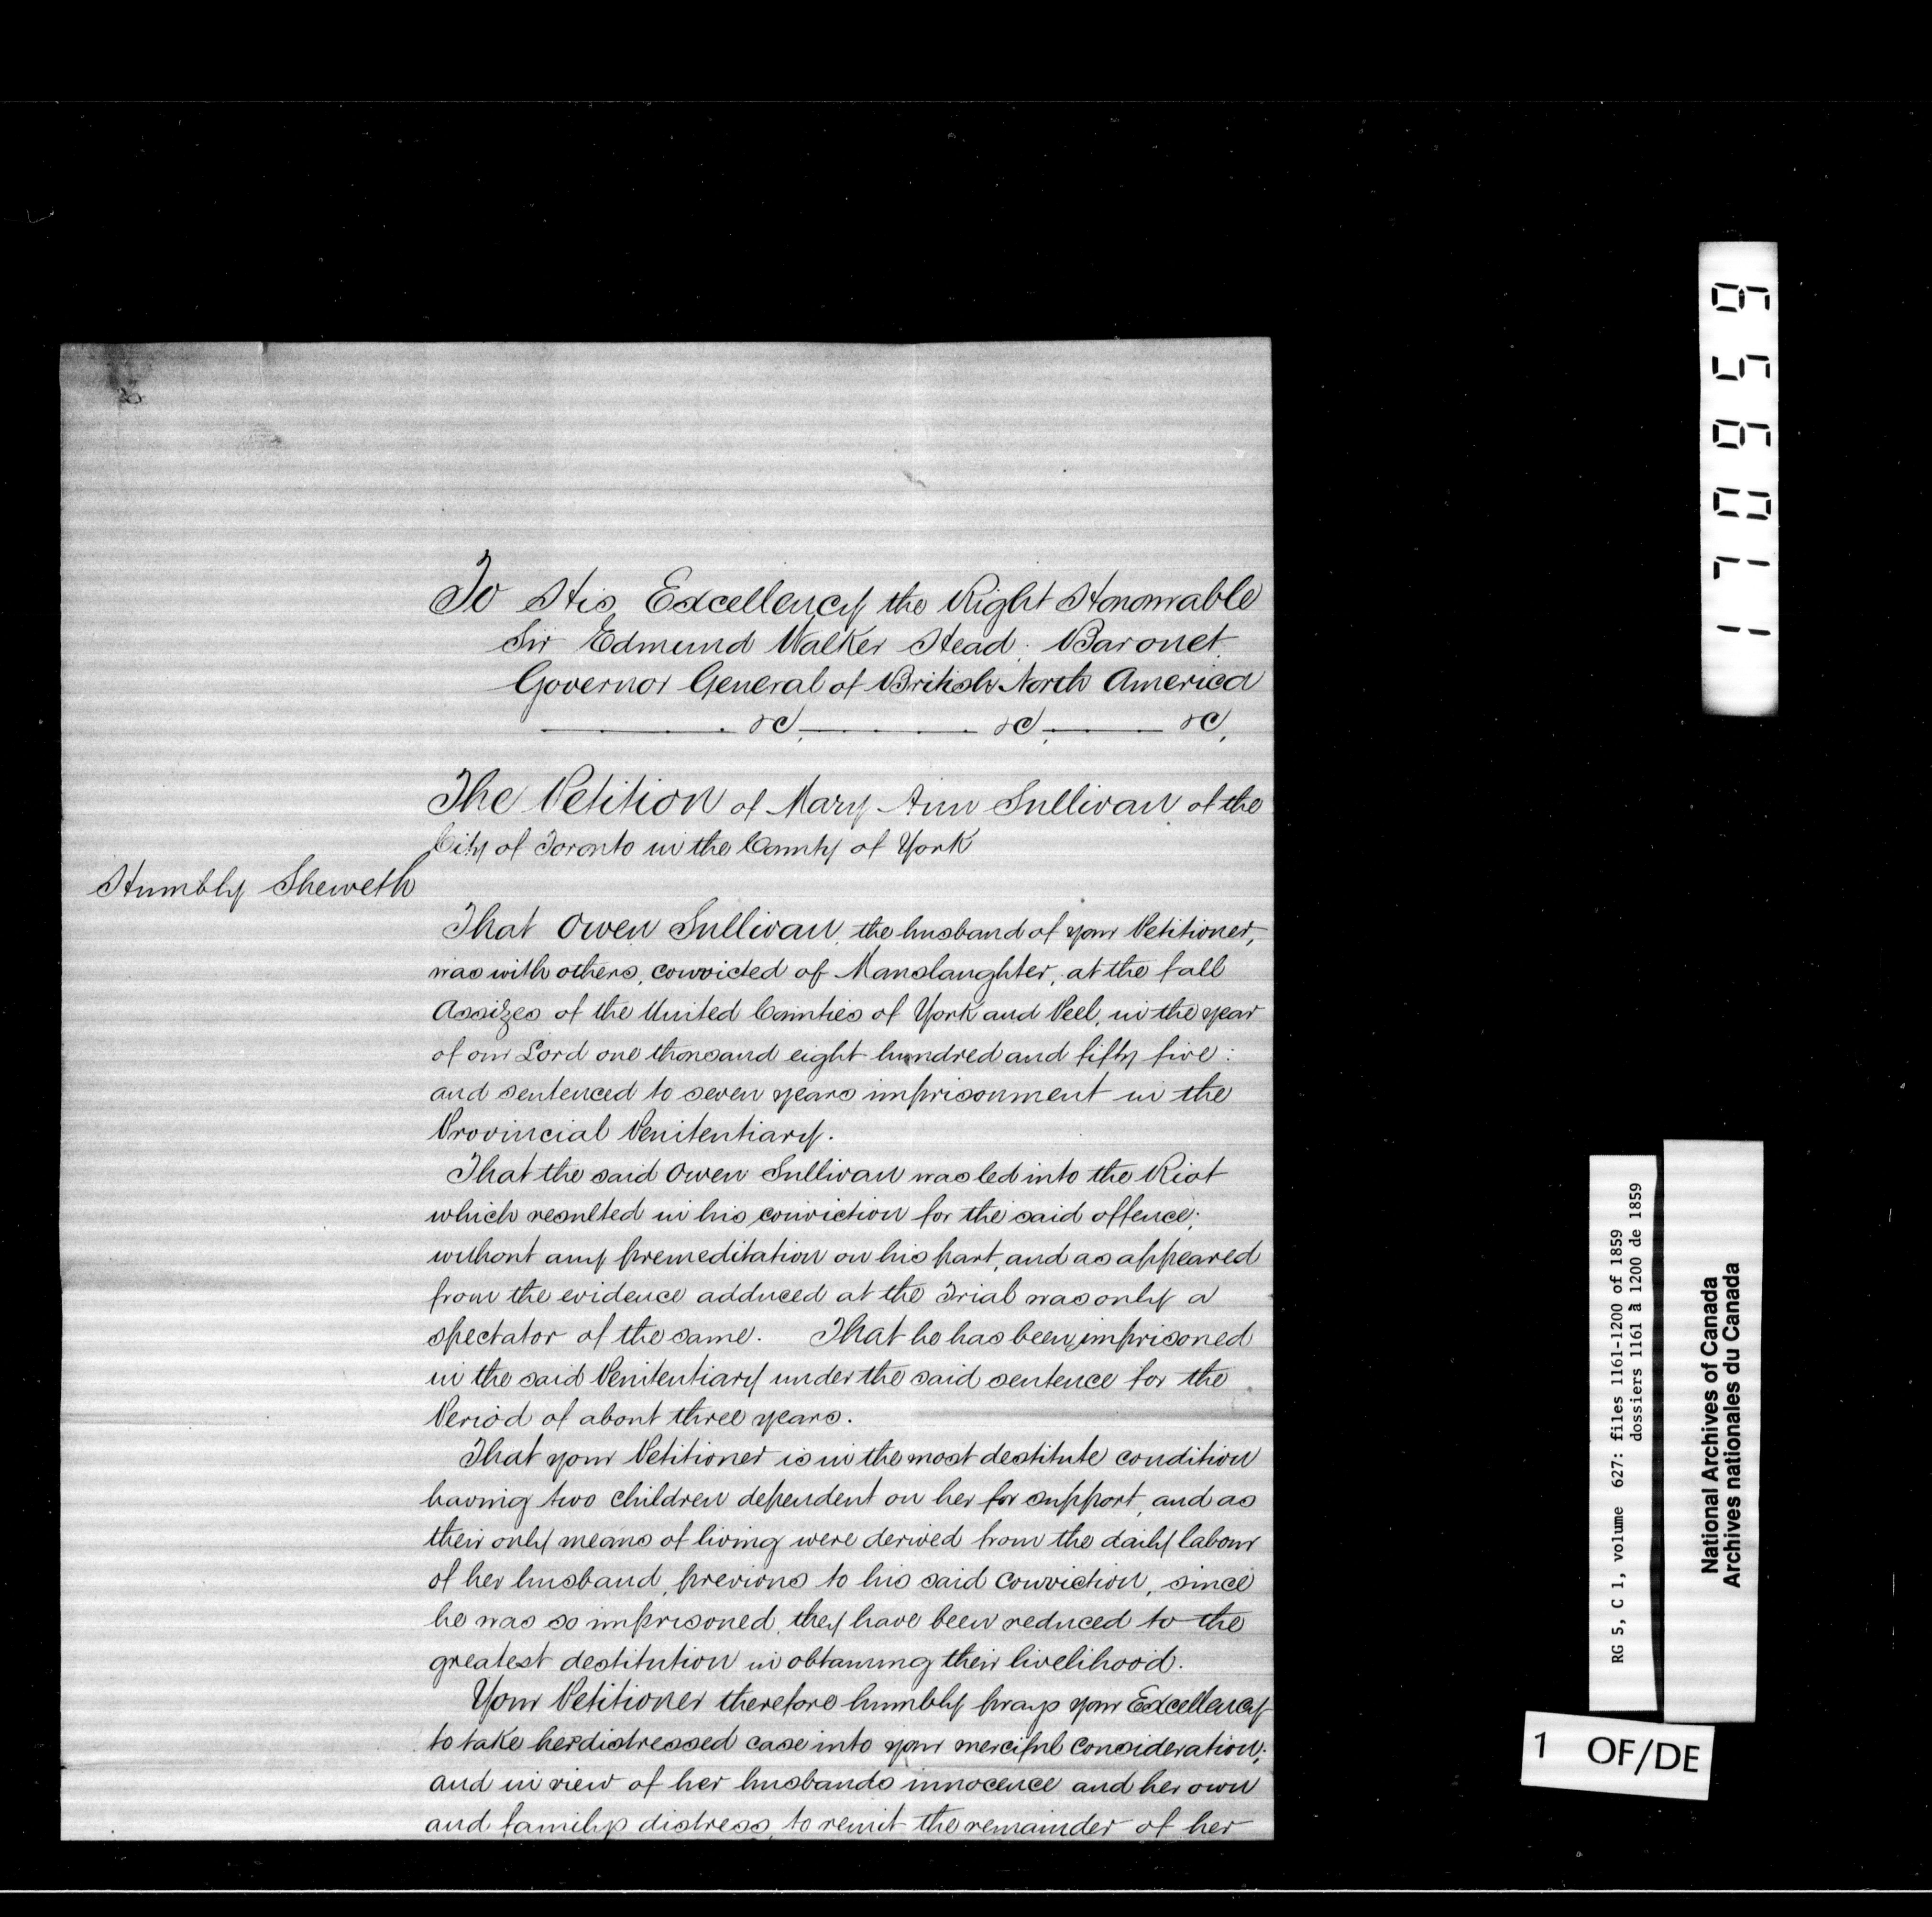 To His Excellency the Right Honourable
Sir Edmund Walker Head. Baronet.
Governor General of British North America
&c, &c, &c,
The Petition of Mary Ann Sullivan of the
City of Toronto in the County of York
Humbly Sheweth
That Owen Sullivan, the husband of your Petitioner,
was with others, convicted of Manslaughter, at the fall
Assizes of the United Counties of York and Peel, in the year
of our Lord one thousand eight hundred and fifty five:
and sentenced to seven years imprisonment in the
Provincial Penitentiary.
That the said Owen Sullivan was led into the Riot
which resulted in his conviction for the said offence;
without any premeditation on his part, and as appeared
from the evidence adduced at the Trial was only a
spectator of the same. That he has been imprisoned
in the said Penitentiary under the said sentence for the
Period of about three years.
That your Petitioner is in the most destitute condition
having two children dependent on her for support, and as
their only means of living were derived from the daily labour
of her husband, previous to his said conviction, since
he was so imprisoned, they have been reduced to the
greatest destitution in obtaining their livelihood.
Your Petitioner therefore humbly prays your Excellency
to take her distressed case into your merciful consideration;
and in view of her husbands innocence and her own
and familys distress, to remit the remainder of her
170959
RG 5, C 1, volume 627: files 1161-1200 of 1859
dossiers 1161 à 1200 de 1859
National Archives of Canada
Archives nationales du Canada
1 OF/DE